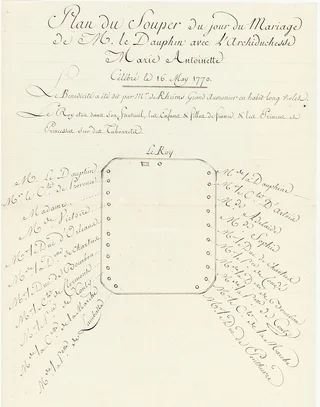 Plan du Souper du jour du Mariage
de M. le Dauphin avec l'Archiduchesse
Marie Antoinette
Célébré le 16. May 1770.
Le Benedicite a été dit par Mr. de Rheims Grand Aumonier en habit long violet.
Le Roy etoit dans son fauteuil, les Enfans & filles de france & les Princes et
Princesses sur des Tabourets
Le Roy
M. Le Dauphin
Mr. le Cte. de Provence
Madame
Me. de Victoire
Mr. le Duc d'Orleans
Mr. le Duc de Chartres
Mr. le Duc de Bourbon
Mr. le Cte. de Clermont
Me. la Pcesse. de Conty
Mr. le Cte. de la Marche
Me. la Pcesse. de Lamballe
Me. la Dauphine
Mr. le Cte. d'Artois
Me. de Adelaïde
Me. de Sophie
Me. la Desse. de Chartres
Mr. le Pce. de Condé
Me. la Desse. de Bourbon
Mr. le Pce. de Conty
Me. la Ctesse. de la Marche
Mr. le Duc de Penthievre